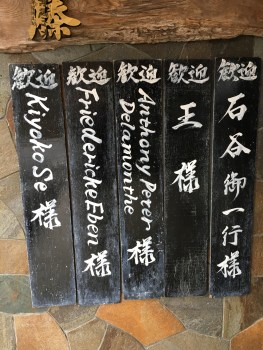 藤
歓迎
石谷御一行様
歓迎
王様
歓迎
Anthony Peter
Delamonthe
様
歓迎
Friedericke Eben
様
歓迎
Kiyoko Se
様